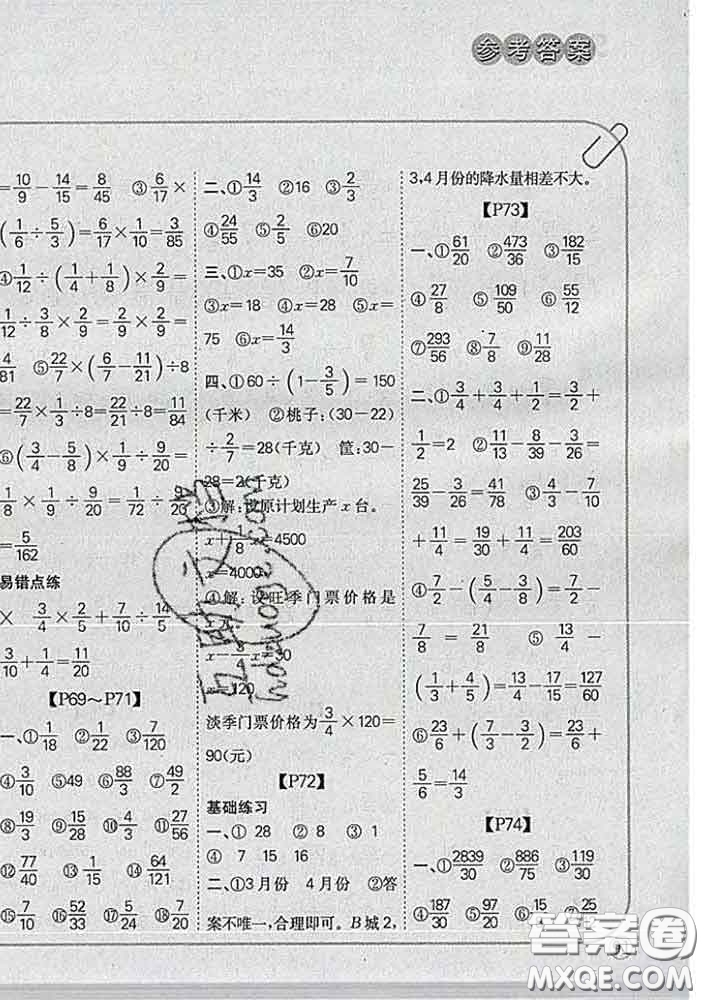 参考答案
=10/9-14/15=8/45 ③6/17×
(1/6÷5/3)=6/17×1/10=3/85
④1/12÷(1/4+1/8)×2/9=
1/12÷3/8×2/9=2/9×2/9=
4/81 ⑤22/7×(6/7-11/21)÷8=
22/7×1/3÷8=22/21÷8=11/84
⑥(3/8-1/4)×1/9÷9/20=
1/8×1/9÷9/20=1/72÷9/20
=5/162
易错点练
× 3/4×2/5+7/10÷14/5=
3/10+1/4=11/20
【P69～P71】
一、①1/18 ②1/22 ③7/120
④3/10 ⑤49 ⑥88/3 ⑦49/2
⑧19/3 ⑨15/28 ⑩2/33 ⑪27/56
⑫77/40 ⑬1/15 ⑭64/121
⑮7/8 ⑯52/33 ⑰5/24 ⑱7/20
二、①14/3 ②16 ③2/3
④24/55 ⑤2/5 ⑥20
三、①x=35 ②x=7/10
③x=18 ④x=28 ⑤x=
75 ⑥x=14/3
四、①60÷(1-3/5)=150
(千米) ②桃子：(30-22)
÷2/7=28(千克) 筐：30-
28=2(千克)
③解：设原计划生产x台。
x+1/8x=4500
x=4000
④解：设旺季门票价格是
x-3/4x=30
x=120
淡季门票价格为3/4×120=
90(元)
【P72】
基础练习
一、① 28 ② 8 ③ 1
④ 7 15 16
二、①3月份 4月份 ②答
案不唯一，合理即可。B城2，
3,4月份的降水量相差不大。
【P73】
一、①61/20 ②473/36 ③182/15
④27/8 ⑤109/50 ⑥55/12
⑦293/56 ⑧7/8 ⑨11/30
二、①3/4+3/4+1/2=3/2+
1/2=2 ②11/13-8/39-3/26=
25/39-3/26=41/78 ③4/3-7/10
+11/30=19/30+11/30+... =203/60
④7/2-(5/4-3/8)=7/2-
7/8=21/8 ⑤13/4-
(1/3+4/5)=13/4-17/15=127/60
⑥23/6+(7/3-3/2)=23/6+
5/6=14/3
【P74】
一、①2839/30 ②886/75 ③119/30
④187/30 ⑤97/20 ⑥15/2 ⑦25/
答案圈
MXQE.COM